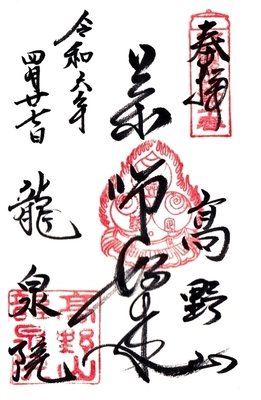 奉拝
高野山
薬師如来
令和六年
四月廿七日
龍泉院